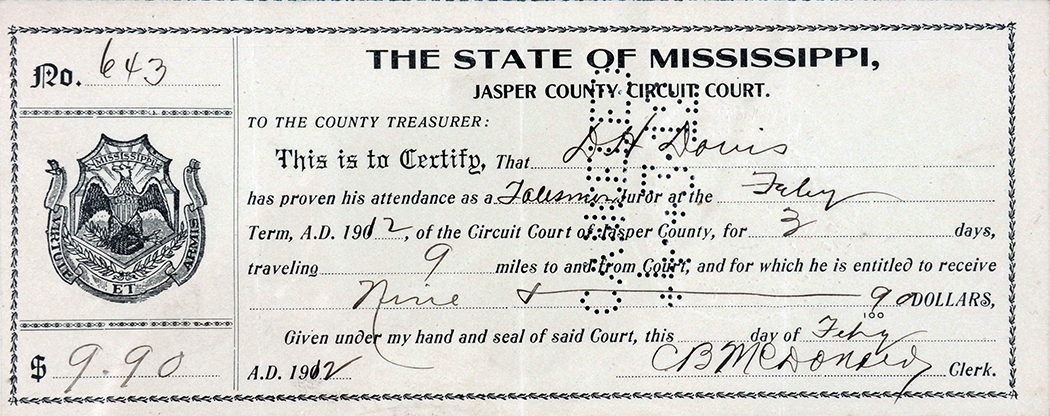 No. 643
THE STATE OF MISSISSIPPI,
JASPER COUNTY CIRCUIT COURT.
TO THE COUNTY TREASURER:
This is to Certify, That D H Davis
has proven his attendance as a Talesman Juror at the Feby
Term, A.D. 1912, of the Circuit Court of Jasper County, for 3 days,
traveling 9 miles to and from Court, and for which he is entitled to receive
Nine & 90/100 DOLLARS,
Given under my hand and seal of said Court, this day of Feby
A.D. 1912 CB McDonald Clerk.
Mississippi
VIRTUTE ET ARMIS
$ 9.90